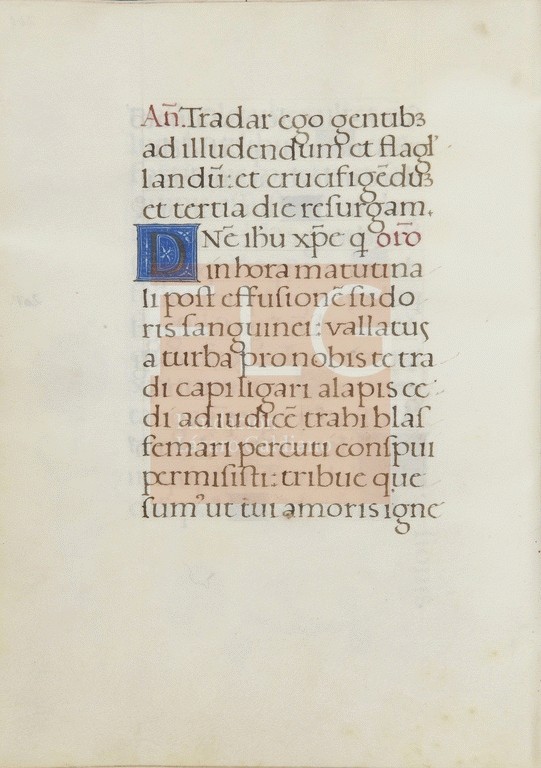 Añ. Tradar ego gentibꝫ
ad illudendum et flagl'
landū: et crucifigēdūꝫ
et tertia die resurgam.
DNē ihu xp̄e q oro
in hora matutina
li post effusionē sudo
ris sanguinei: vallatus
a turba pro nobis te tra
di capi ligari alapis ce
di adiudicē trabi blas
femari percuti conspui
permisisti: tribue que
sum⁹ ut tui amoris igne
FLC